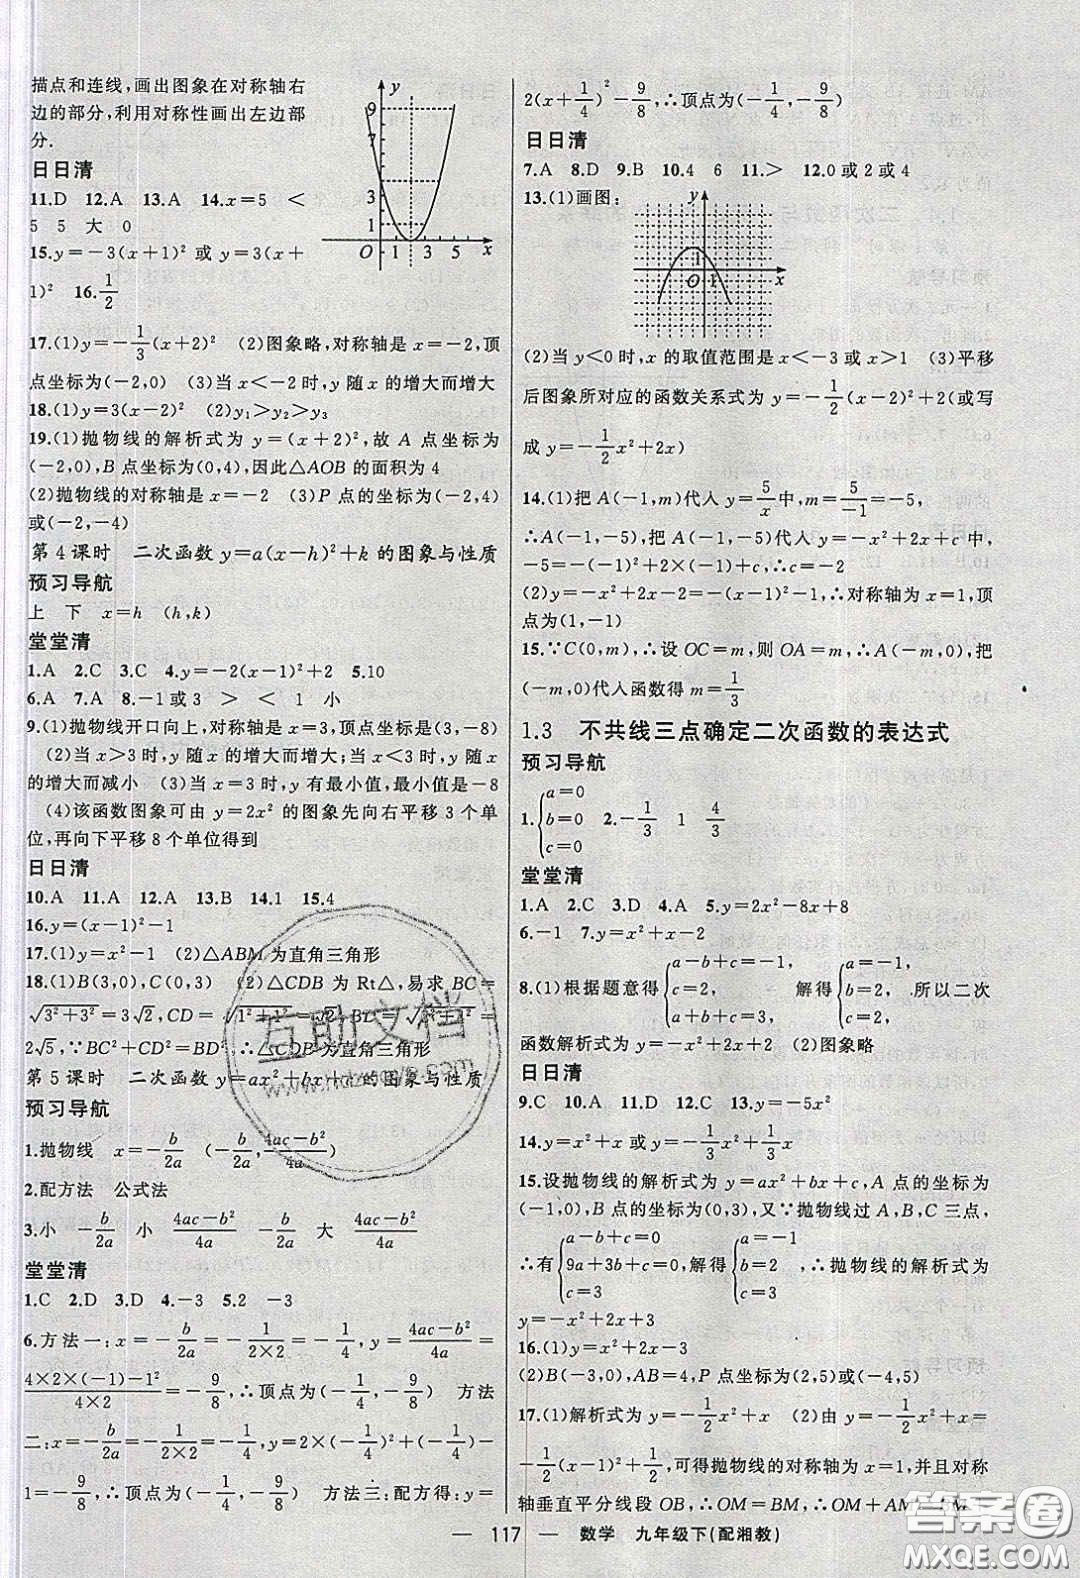 描点和连线,画出图象在对称轴右
边的部分,利用对称性画出左边部
分.
日日清
11.D 12.A 13.A 14.x=5 <
5 5 大 0
15.y=-3(x+1)² 或 y=3(x+
1)² 16.1/2
17.(1)y=-1/3(x+2)² (2)图象略,对称轴是 x=-2,顶
点坐标为(-2,0) (3)当 x<-2 时,y 随 x 的增大而增大
18.(1)y=3(x-2)² (2)y₁>y₂>y₃
19.(1)抛物线的解析式为 y=(x+2)²,故 A 点坐标为
(-2,0),B 点坐标为(0,4),因此△AOB 的面积为 4
(2)抛物线的对称轴是 x=-2 (3)P 点的坐标为(-2,4)
或(-2,-4)
第 4 课时 二次函数 y=a(x-h)²+k 的图象与性质
预习导航
上 下 x=h (h,k)
堂堂清
1.A 2.C 3.C 4.y=-2(x-1)²+2 5.10
6.A 7.A 8.-1 或 3 > < 1 小
9.(1)抛物线开口向上,对称轴是 x=3,顶点坐标是(3,-8)
(2)当 x>3 时,y 随 x 的增大而增大;当 x<3 时,y 随 x
的增大而减小 (3)当 x=3 时,y 有最小值,最小值-8
(4)该函数图象可由 y=2x² 的图象先向右平移 3 个单
位,再向下平移 8 个单位得到
日日清
10.A 11.A 12.A 13.B 14.1 15.4
16.y=(x-1)²-1
17.(1)y=x²-1 (2)△ABM 为直角三角形
18.(1)B(3,0),C(0,3) (2)△CDB 为 Rt△,易求 BC=
√(3²+3²)=3√2,CD=√(1²+1²)=√2,BD=
2√5,∵BC²+CD²=BD²,∴△CDB 为直角三角形
第 5 课时 二次函数 y=ax²+bx+c 的图象与性质
预习导航
1.抛物线 x=-b/2a (-b/2a,(4ac-b²)/4a)
2.配方法 公式法
3.小 -b/2a 小 (4ac-b²)/4a -b/2a 大 (4ac-b²)/4a
堂堂清
1.C 2.D 3.D 4.-3 5.2 -3
6.方法一:x=-b/2a=-1/(2×2)=-1/4,y=(4ac-b²)/4a=
(4×2×(-1)-1²)/(4×2)=-9/8,∴顶点为(-1/4,-9/8) 方法
二:x=-b/2a=-1/(2×2)=-1/4,y=2×(-1/4)²+(-1/4)-
1=-9/8,∴顶点为(-1/4,-9/8) 方法三:配方得:y=
y
9
3
1
O 1 3 5 x
2(x+1/4)²-9/8,∴顶点为(-1/4,-9/8)
日日清
7.A 8.D 9.B 10.4 6 11.> 12.0 或 2 或 4
13.(1)画图:
y
1
O 1 x
(2)当 y<0 时,x 的取值范围是 x<-3 或 x>1 (3)平移
后图象所对应的函数关系式为 y=-1/2(x-2)²+2(或写
成 y=-1/2x²+2x)
14.(1)把 A(-1,m)代人 y=5/x中,m=5/-1=-5,
∴A(-1,-5),把 A(-1,-5)代人 y=-x²+2x+c 中,
-5=-(-1)²+2×(-1)+c,∴c=-2
(2)y=-x²+2x-2=-(x-1)²-1,∴对称轴为 x=1,顶
点为(1,-1)
15.∵C(0,m),∴设 OC=m,则 OA=m,∴A(-m,0),把
(-m,0)代人函数得 m=1/3
1.3 不共线三点确定二次函数的表达式
预习导航
1.{a=0 b=0 c=0 2.-1/3 1 4/3
堂堂清
1.A 2.C 3.D 4.A 5.y=2x²-8x+8
6.-1 7.y=x²+x-2
8.(1)根据题意得{a-b+c=1, c=2, a+b+c=3, 解得{a=1, b=1, c=2, .所以二次
函数解析式为 y=x²+2x+2 (2)图象略
日日清
9.C 10.A 11.D 12.C 13.y=-5x²
14.y=x²+x 或 y=-1/3x²+1/3x
15.设抛物线的解析式为 y=ax²+bx+c,A 点的坐标为
(-1,0),B 点的坐标为(0,3),又∵抛物线过 A,B,C 三点,
∴有{a-b+c=0 9a+3b+c=0,解得{a=-1 b=2 c=3 ,∴抛物线的解析式为
y=-x²+2x+3
16.(1)y=x²+2x-3
(2)B(-3,0),AB=4,P 点坐标为(2,5)或(-4,5)
17.(1)解析式为 y=-1/2x²+x (2)由 y=-1/2x²+x=
-1/2(x-1)²+1/2,可得抛物线的对称轴为 x=1,并且对称
轴垂直平分线段 OB,∴OM=BM,∴OM+AM=
— 117 — 数学 九年级下(配湘教)
互助文档
答案圈
MXQE.COM